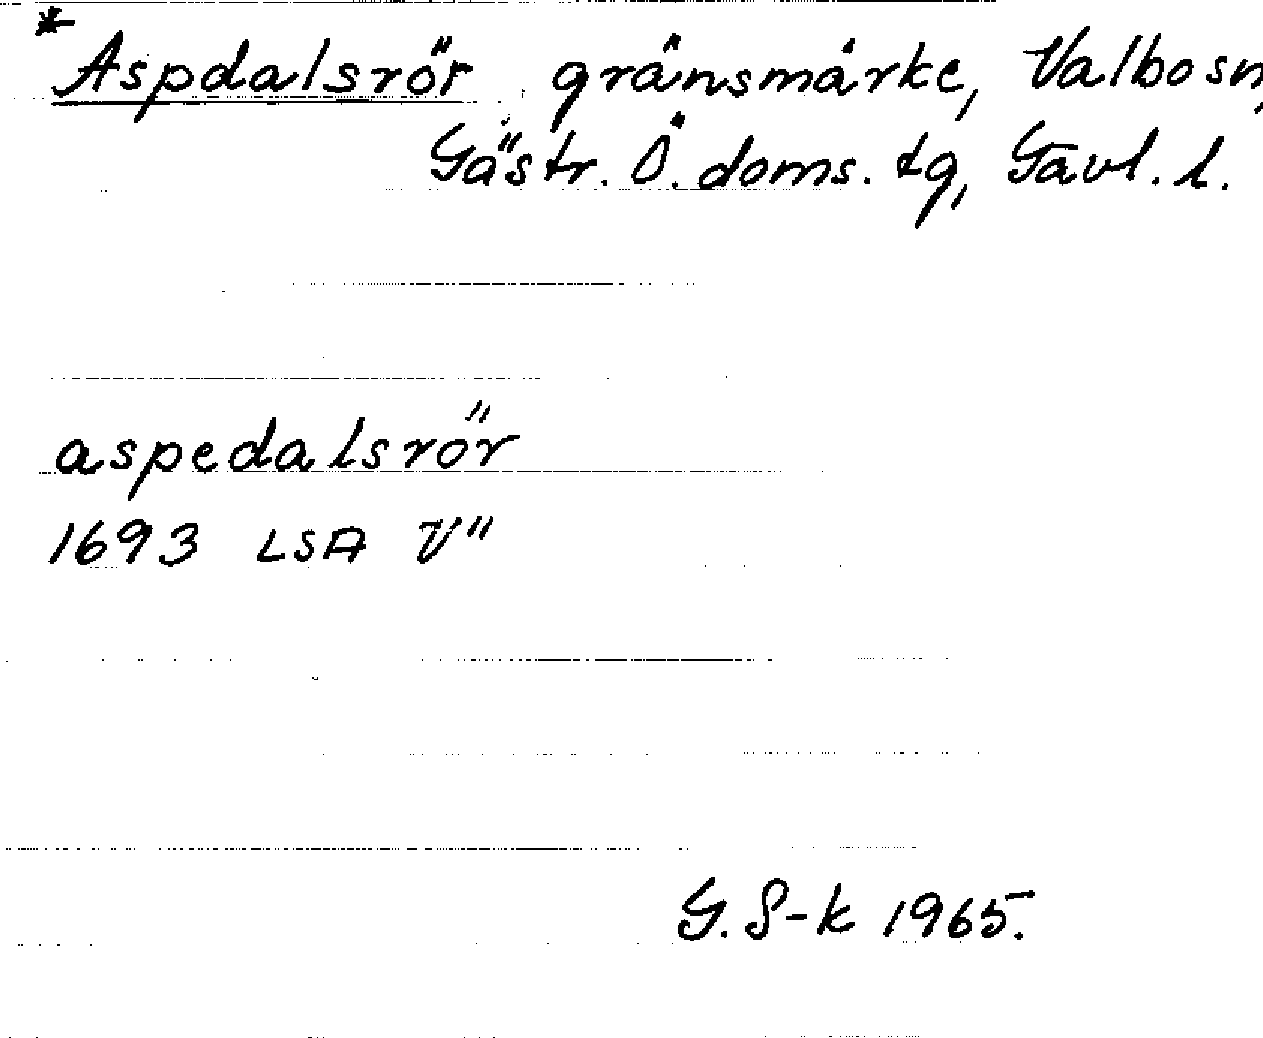 *Aspdalsrör gränsmärke, Valbo sn,
Gästr. Ö. doms. tg, Gävl. l.
aspedalsrör
1693 LSA V"
G. S-k 1965.